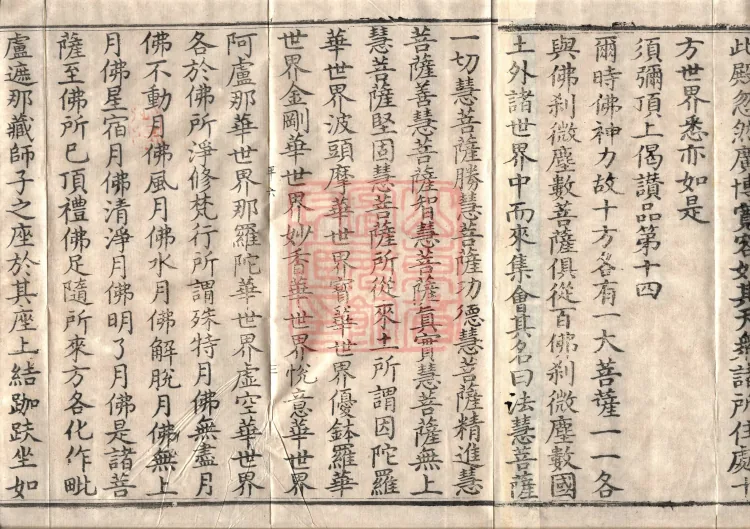 此殿忽然廣博寬容如其天衆諸所住處十
方世界悉亦如是
須彌頂上偈讚品第十四
爾時佛神力故十方各有一大菩薩一一各
與佛刹微塵數菩薩俱從百佛刹微塵數國
土外諸世界中而來集會其名曰法慧菩薩
一切慧菩薩勝慧菩薩功德慧菩薩精進慧
菩薩善慧菩薩智慧菩薩眞實慧菩薩無上
慧菩薩堅固慧菩薩所從來土所謂因陀羅
華世界波頭摩華世界寶華世界優鉢羅華
世界金剛華世界妙香華世界悅意華世界
阿盧那華世界那羅陀華世界虛空華世界
各於佛所淨修梵行所謂殊特月佛無盡月
佛不動月佛風月佛水月佛解脫月佛無上
月佛星宿月佛清淨月佛明了月佛是諸菩
薩至佛所已頂禮佛足隨所來方各化作毗
盧遮那藏師子之座於其座上結跏趺坐如